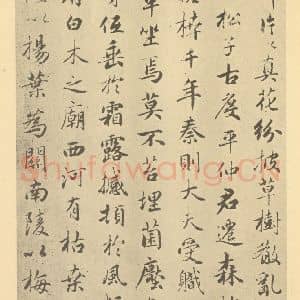 片片真花紛披草樹散亂
松子古度平仲君遷森
枿千年秦則大夫受職
軍坐焉莫不苔埋菌壓
低垂於霜露撼頓於風
有白木之廟西河有枯桑
以楊葉為關南陵以梅
Shufawang.CN